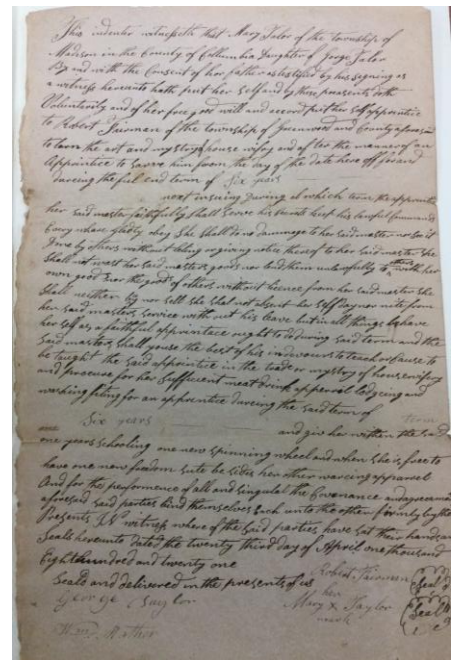 This indenter witnesseth that Mary Talor of the township of
Madison in the County of Collumbia Daughter of Gorge Talor
By and with the Consent of her father as testifid by his signing as
a witness hereunto hath put her self and by these presents doth
Volunterily and of her free good will and accord put her self apprentice
to Robert Fairman of the township of Greenwood and County aforesaid
to larn the art and mystry of house wifry and after the manner of an
Apprintice to sarve him from the day of the date here off for and
dureing the full end term of Six years
next insuing During al which term the apprentice
her said master faithfully shall serve his secrets keep his lawful Commands
Every where gladly obey She shall do no dammage to her said master nor see it
Done by others without teling or giving notice thereof to her said master she
Shall not wast her said masters goods nor lend them unlawfully to with her
own goods nor the goods of others without licence from her said master she
Shall neither by nor sell she shal not absent her self day nor nite from
her said masters service with out his leave but in all things behave
her self as a faithful apprinticce ought to do during said term and the
Said master shall youse the best of his indevours to teach or cause to
be taught the said apprintice in the trade or mystry of housewifry
and procure for her sufficcent meat drink apperral lodgeing and
washing fiting for an apprentice dureing the said term of
Six years and giv her within the said term
one years schooling one new spinning wheel and when she is free to
have one new freedom sute be sides her other wareing apparrel
And for the performence of all and singular the Covenance and agreements
aforesaid said parties bind themselves Each unto the other firmly by these
Presents In witness where of the said parties have sat their hands and
Seals hereunto dated the twenty third day of April one thousand
Eight hundred and twenty one
Seald and delivered in the presents of us
Robert Fairman Seal
George Taylor
her
Mary X Taylor Seal
mark
Wm